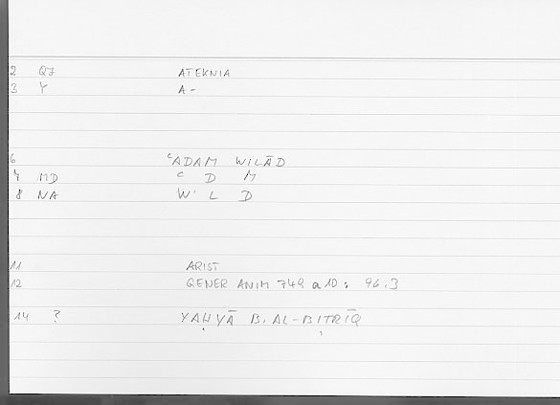 2 QJ ATEKNIA
3 Y A-
6 ʿADAM WILĀD
7 MD ʿ D M
8 NA W L D
11 ARIST
12 GENER ANIM 749 a 10 : 96.3
14 ? YAḤYĀ B. AL-BIṬRĪQ